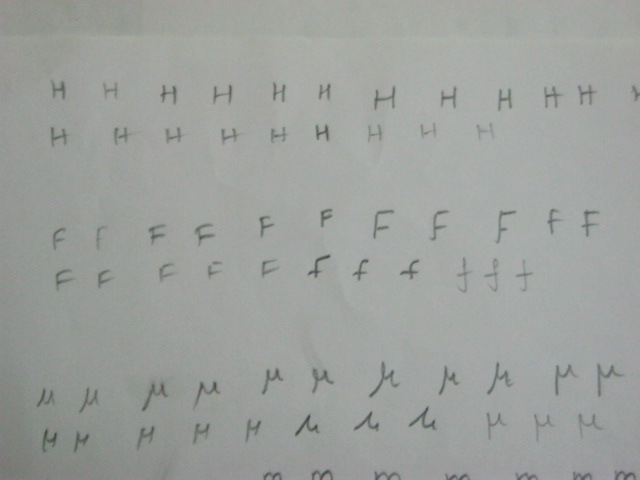 H H H H H H H H H H H H
H H H H H H H H H
F F F F F F F F F f F
F F F F F f f f f f f
μ μ μ μ μ μ μ μ μ μ μ
μ μ μ μ μ μ μ μ μ μ μ
m m m m m m m